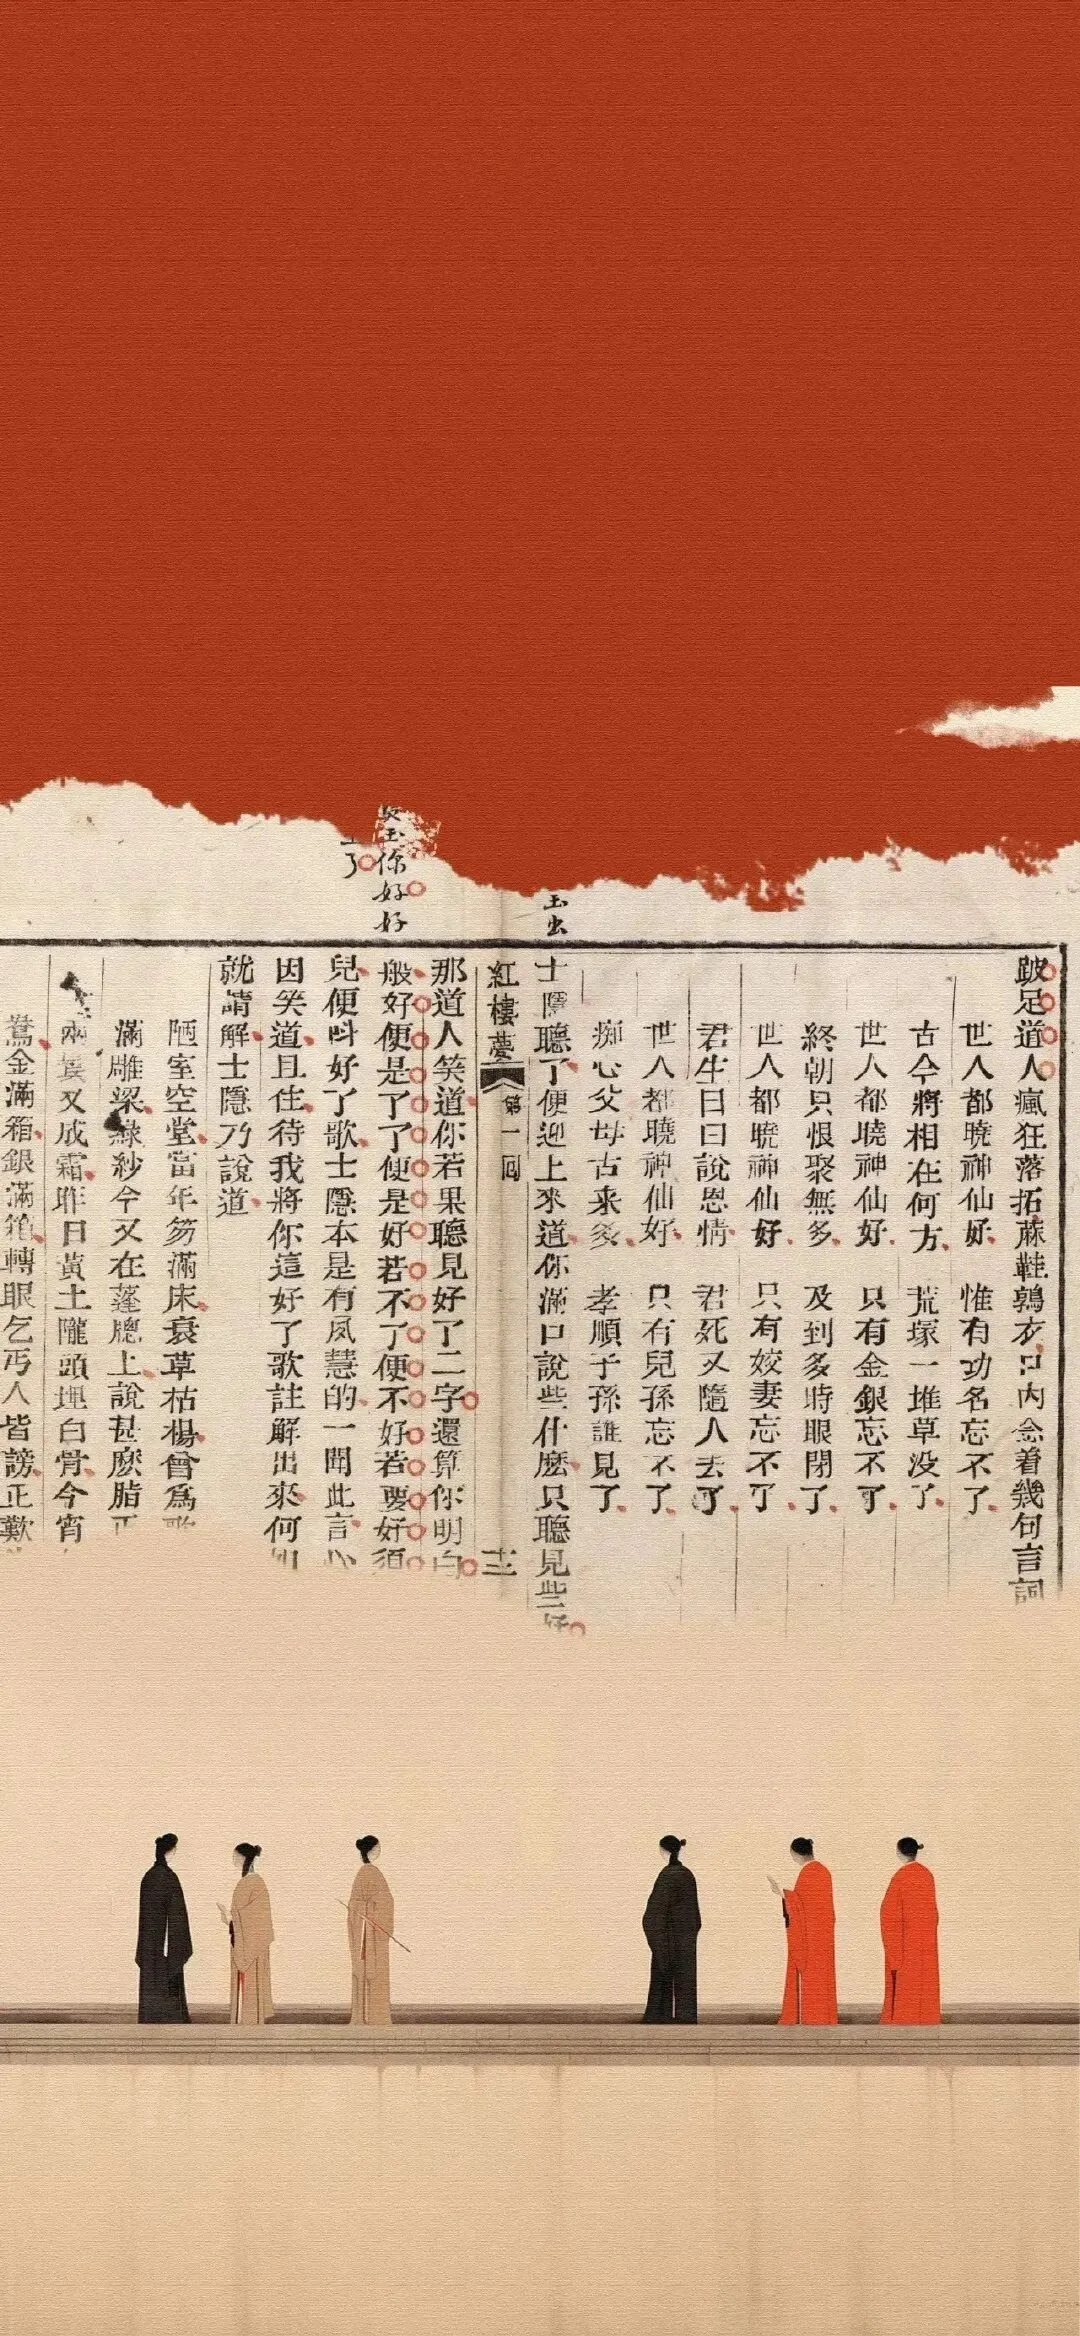 跛足道人瘋狂落拓蔴鞋鶉衣口內念着幾句言詞
世人都曉神仙好 惟有功名忘不了
古今將相在何方 荒塚一堆草没了
世人都曉神仙好 只有金銀忘不了
終朝只恨聚無多 及到多時眼閉了
世人都曉神仙好 只有姣妻忘不了
君生日日說恩情 君死又隨人去了
世人都曉神仙好 只有兒孫忘不了
痴心父母古来多 孝順子孫誰見了
玉出
士隱聽了便迎上來道你滿口說些什麽只聽見些好
紅樓夢 第一囘 十三
那道人笑道你若果聽見好了二字還算你明白
玉你好好
般好便是了了便是好若不了便不好若要好須
了
兒便呌好了歌士隱本是有夙慧的一聞此言心
因笑道且住待我將你這好了歌註解出來何如
就請解士隱乃說道
陋室空堂當年笏滿床衰草枯楊曾爲歌
滿雕梁綠紗今又在蓬牕上說甚麽脂正
兩鬢又成霜昨日黃土隴頭埋白骨今宵
鴦金滿箱銀滿箱轉眼乞丐人皆謗正歎